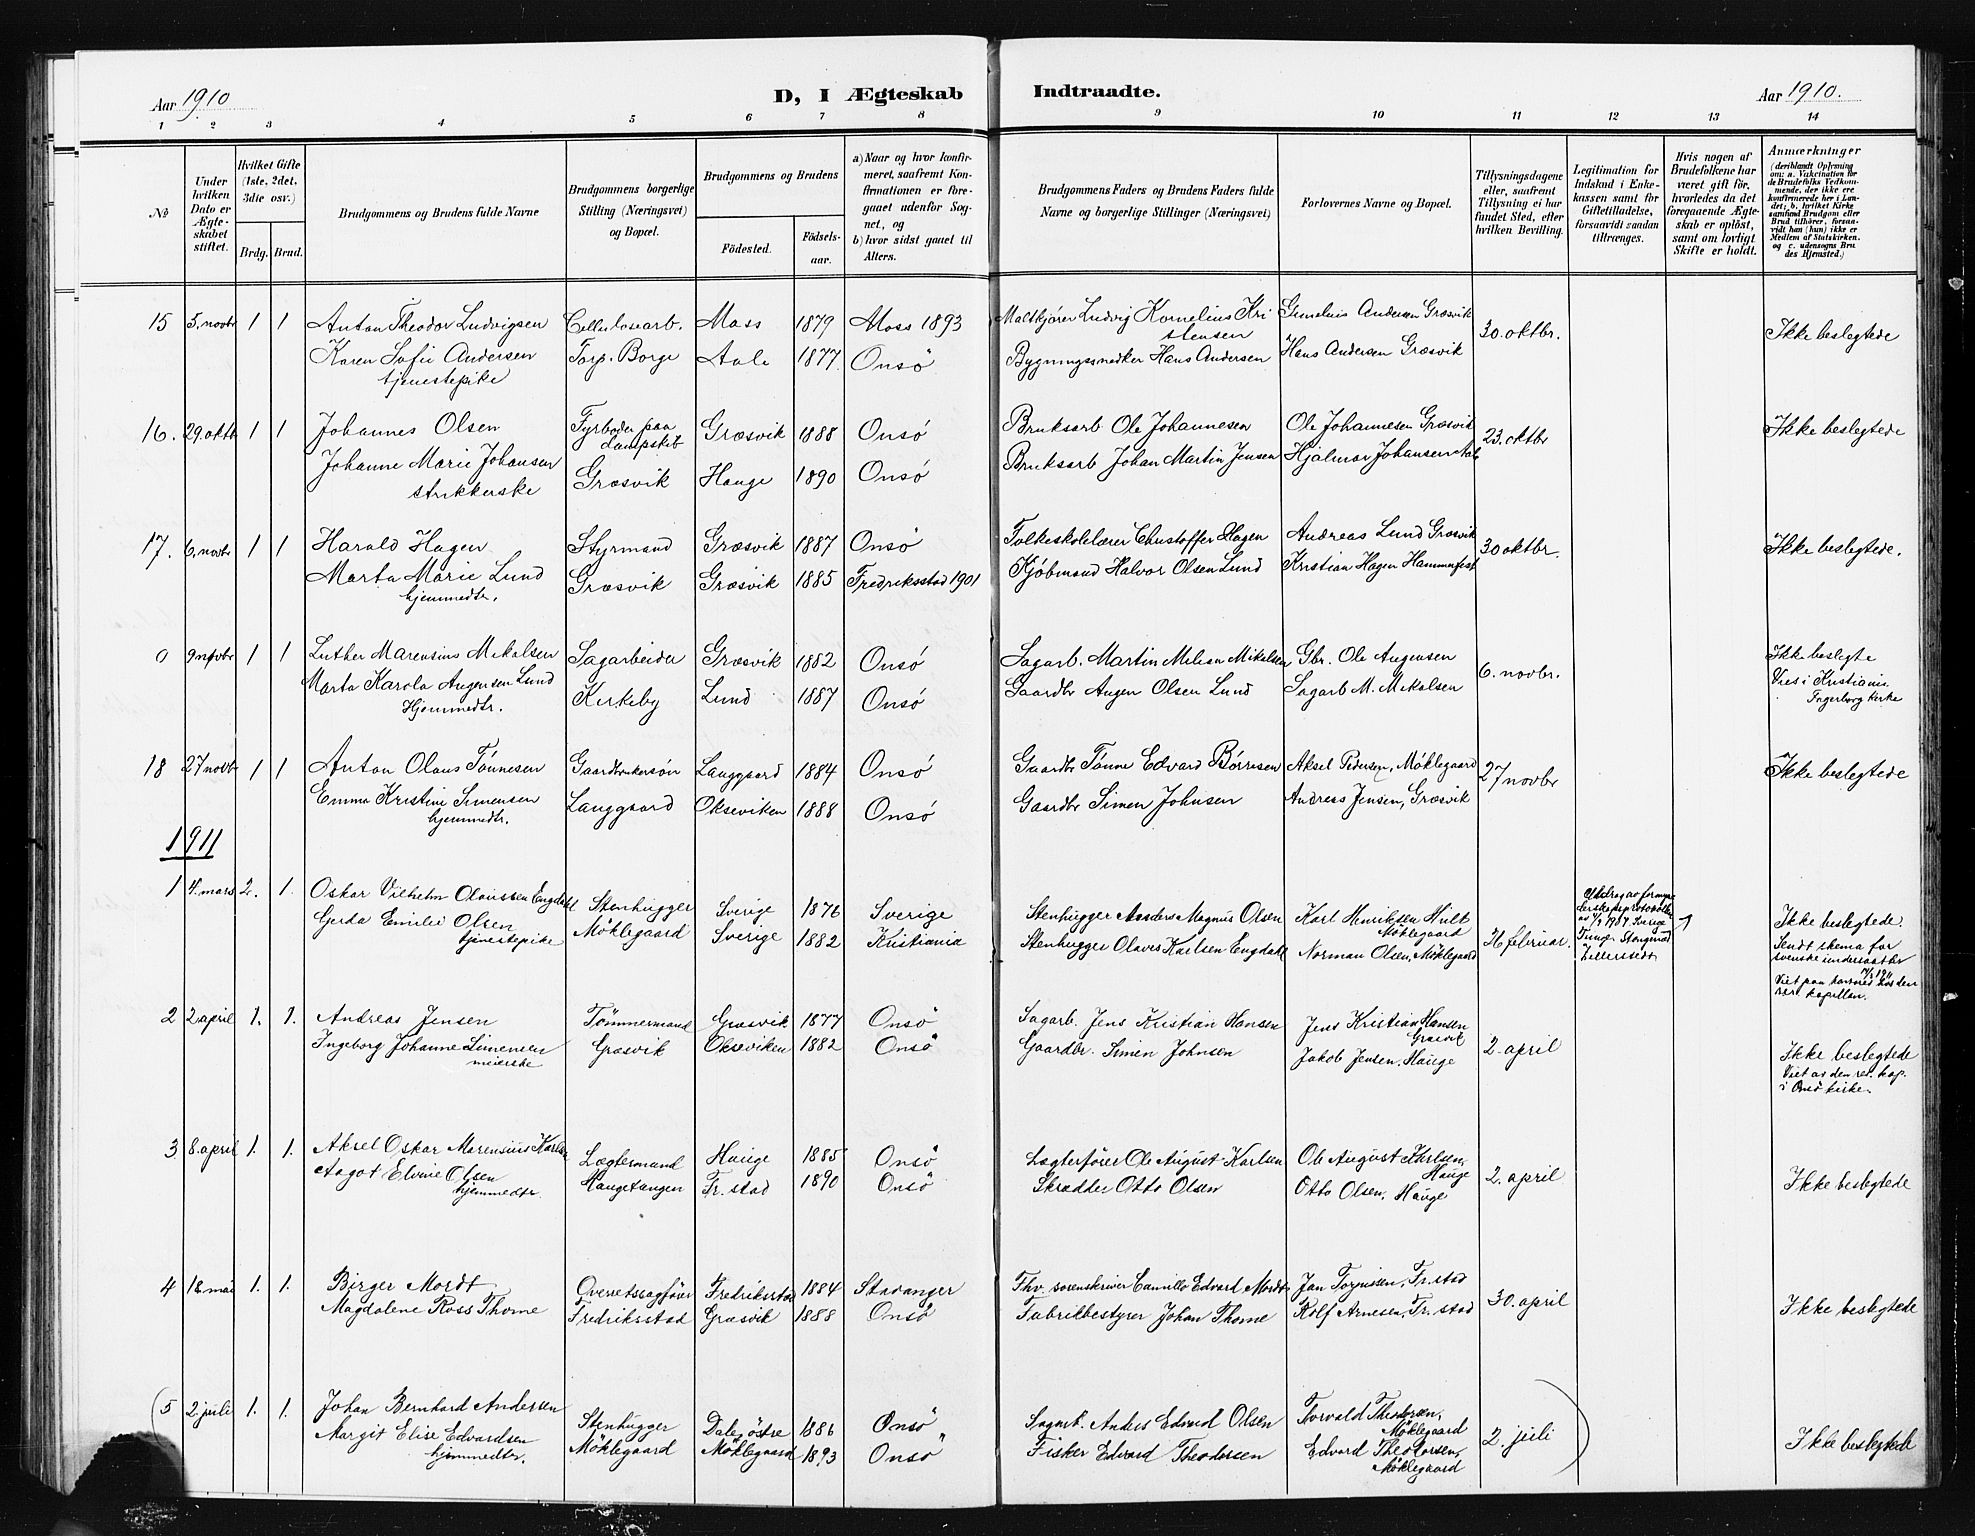 Aar 1910 D, I Ægteskab Indtraadte. Aar 1910.
1 2 3 4 5 6 7 8 9 10 11 12 13 14
No
Under hvilken Dato er Ægteskabet stiftet.
Hvilket Gifte (1ste, 2det, 3die osv.)
Brdg. Brud.
Brudgommens og Brudens fulde Navne
Brudgommens borgerlige Stilling (Næringsvei) og Bopæl.
Brudgommens og Brudens
Födested.
Födsels-aar.
a) Naar og hvor konfirmeret, saafremt Konfirmationen er foregaaet udenfor Sognet, og
b) hvor sidst gaaet til Alters.
Brudgommens Faders og Brudens Faders fulde Navne og borgerlige Stillinger (Næringsvei)
Forlovernes Navne og Bopæl.
Tillysningsdagene eller, saafremt Tillysning ei har fundet Sted, efter hvilken Bevilling.
Legitimation for Indskud i Enkekassen samt for Giftetilladelse, forsaavidt saadan tiltrænges.
Hvis nogen af Brudefolkene har været gift för, hvorledes da det foregaaende Ægteskab er oplöst, samt om lovligt Skifte er holdt.
Anmærkninger
(deriblandt Oplysning om: a. Vakcination for de Brudefolks Vedkommende, der ikke ere konfirmerede her i Landet; b. hvilket Kirkesamfund Brudgom eller Brud tilhörer, forsaavidt han (hun) ikke er Medlem af Statskirken, og c. udensogns Brudes Hjemsted.)
15 5. novbr 1 1 Anton Theodor Ludvigsen Cellulosearb. Moss 1879 Moss 1893 Maltkjörer Ludvig Kornelius Kristensen Andersen Græsvik 30. oktbr. Ikke beslegtede
Karen Sofie Andersen Torp. Borge Aale 1877. Onsö Bygningssnedker Hans Andersen Hans Andersen Græsvik
tjenestepike
16. 29. oktb 1 1 Johannes Olsen Fyrböder paa Lampskib Græsvik 1888 Onsö Bruksarb Ole Johannesen Ole Johannesen Græsvik 23. oktbr Ikke beslegtede
Johanne Marie Johansen Græsvik Hauge 1890 Onsö Bruksarb Johan Martin Jensen Hjalmar Johansen
strikkerske
17. 6. novbr 1 1 Harald Hagen Styrmand Græsvik 1887 Onsö Folkeskolelærer Christoffer Hagen Andreas Lund Græsvik 30 oktbr. Ikke beslegtede.
Marta Marie Lund Græsvik Græsvik 1885 Fredriksstad 1901 Kjöbmand Halvor Olsen Lund Kristian Hagen Hammerfest
hjemmedtr.
0 9 novbr 1 1 Luther Marensius Mikalsen Sagarbeider Græsvik 1882 Onsö Sagarb. Martin Milian Mikelsen Gbr. Ole Augensen 6. novbr. Ikke beslegte
Marta Karola Augensen Lund Kirkeby Lund 1887 Onsö Gaardbr Augen Olsen Lund Sagarb M. Mikalsen Vies i Kristiania
Hjemmedtr. Ingerborg kirke
18 27 novb 1 1 Anton Olaus Tönnesen Gaardbrukersön Langgaard 1884 Onsö Gaardbr Tönne Edvard Börresen Aksel Pedersen, Möklegaard 27 novbr Ikke beslegtede
Emma Kristine Simensen Langgaard Okseviken 1888 Onsö Gaardbr Simen Johnsen Andreas Jensen, Græsvik
hjemmedtr.
1911
1 4. mars 2. 1. Oskar Vilhelm Olaussen Engdahl Stenhugger Sverige 1876 Sverige Stenhugger Anders Magnus Olsen Karl Henriksen Hult Möklegaard 26 februar. Ikke beslegtede.
Gerda Emilie Olsen Möklegaard Sverige 1882 Kristiania Stenhugger Olaves Karlsen Engdahl Norman Olsen, Möklegaard Sendt skema for svenske undersaatter
tjenestepike
2 2 april 1. 1. Andreas Jensen Tömmermand Græsvik 1877 Onsö Sagarb. Jens Kristian Hansen Jens Kristian Hansen Græsvik 2. april Ikke beslegtede
Ingeborg Johanne Simensen Græsvik Okseviken 1882 Onsö Gaardbr. Simen Johnsen Jakob Jensen, Hauge Viet av den res. kap. i Onsö kirke.
meierske
3 8. april 1. 1. Aksel Oskar Marensius Karlsen Lægtermand Hauge 1885 Onsö Lægterförer Ole August Karlsen Ole August Karlsen, Hauge 2. april Ikke beslegtede
Aagot Elvine Olsen Haugetangen Fr.stad 1890 Onsö Skrædder Otto Olsen Otto Olsen, Hauge
hjemmedtr.
4 18. mai 1. 1. Birger Mordt Overretssagförer Fredriksstad 1884 Stavanger Fhv. sorenskriver Camillo Edvard Mordt Jan Torjussen, Fr.stad 30. april Ikke beslegtede
Magdalene Ross Thorne Fredriksstad Græsvik 1888 Onsö Fabrikbestyrer Johan Thorne Rolf Arnesen, Fr.stad
(5 2 juli 1. 1. Johan Bernhard Andersen Stenhugger Dale östre 1886 Onsö Sagarb. Anders Edvard Olsen Torvald Theodorsen, Möklegaard 2. juli ) Ikke beslegtede
Margit Elise Edvardsen Möklegaard Möklegaard 1893 Onsö Fisker Edvard Theodorsen Edvard Theodorsen, Möklegaard
hjemmedtr.